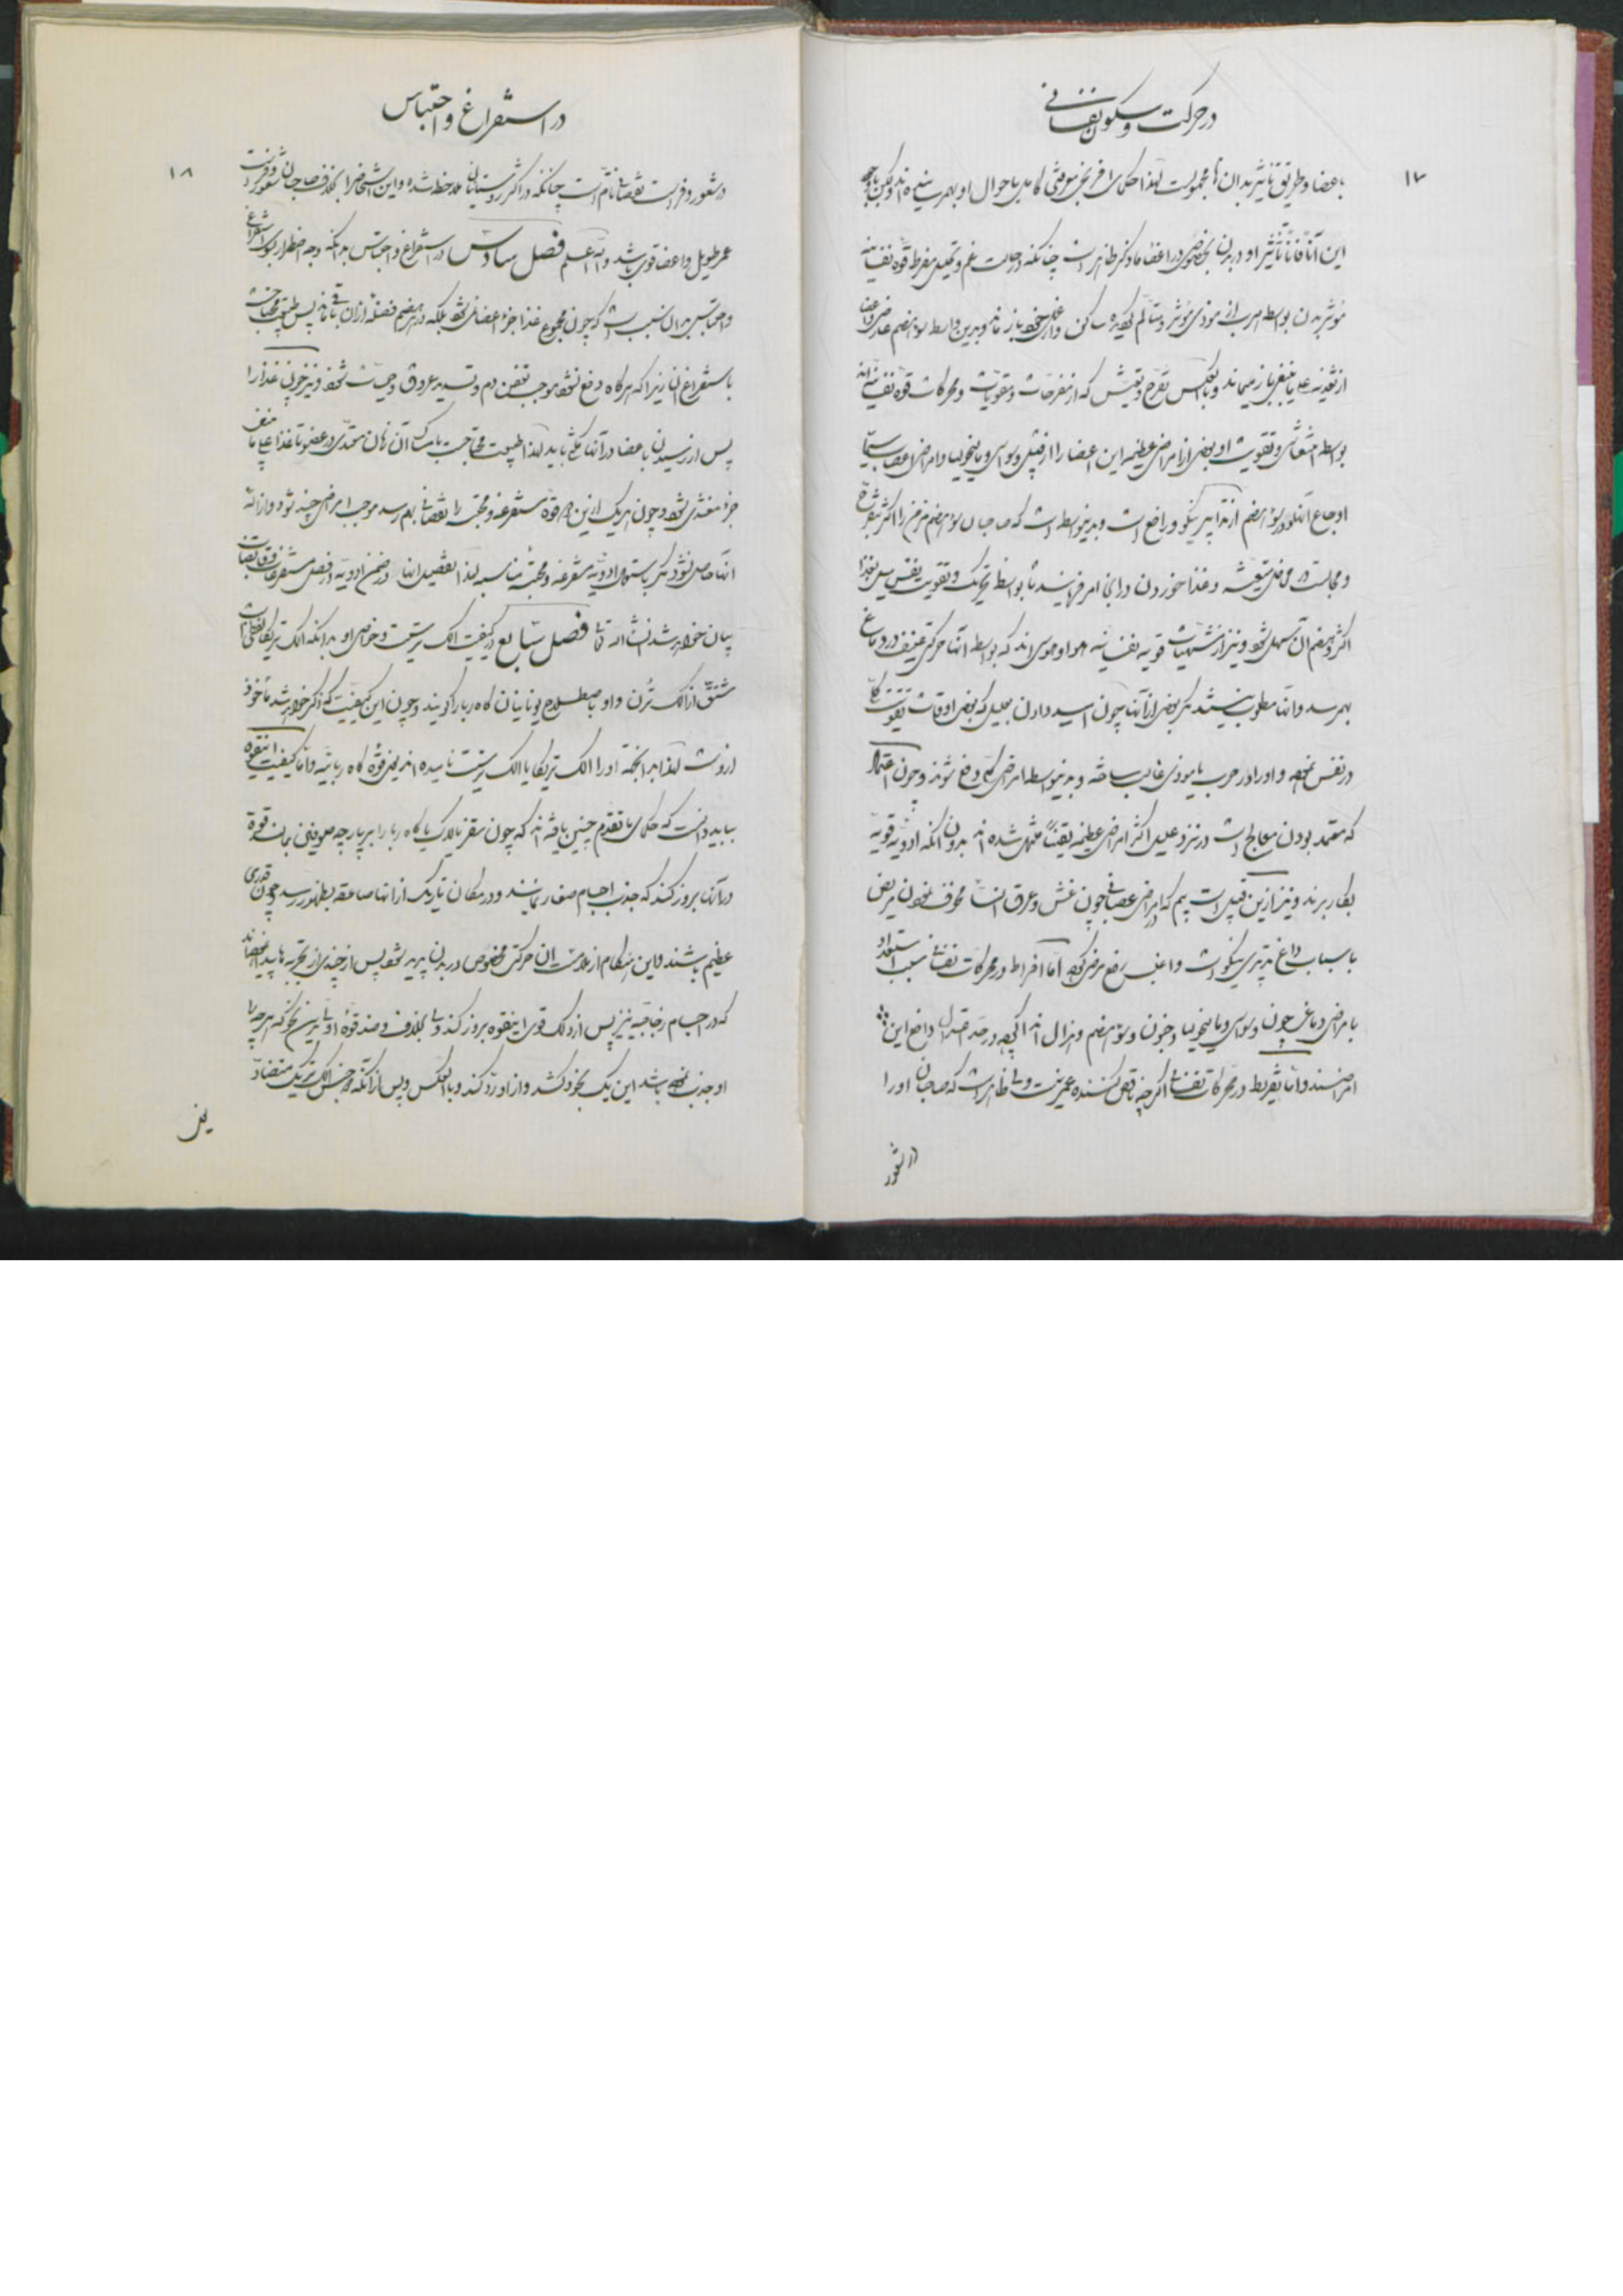 در حرکت و سکون نفسانی
۱۷
باعضا و طریق تاثیر بدان‌ها مجهولست لهذا حکمای افرنج وقوفی کامل باحوال او بهم نرسانیده‌اند ولکن با وجود
این آنا فانا تاثیر او در بدن بخصوص در اعضا ماده کر ظاهر است چنانکه در حالت غم و تحلیل مفرط قوه نفسانیه
مؤثر بدن بواسطه هرب از موذی مؤثر و متالم کردیده ساکن و از عمل خود باز ماند و بدین واسطه سوء هضم عارض و اعضا
از تغذیه علی ما ینبغی باز میماند و بالعکس تفرح و تعیش که از مفرحات و مقویات و محرکات قوه نفسانیه‌اند
بواسطه انتعاش و تقویت او بعضی از امراض عظیمه این اعضا را از قبیل وسواس و مالیخولیا و امراض اعصاب سیما
اوجاع آنها و در سوء هضم از تدابیر نیکو و رافع است و بدینواسطه است که صاحبان سوء هضم مزمن را اکثر بتفرج
و مجالست در محافل متعیشه و غذا خوردن در آنجا امر فرمایند تا بواسطه تحریک و تقویت نفس میل بغذا
اکثر و هضم آن سهل شود و نیز از مشتهیات قویه نفسانیه هوا و هوس‌اند که بواسطه آنها حرکتی عنیف در دماغ
بهم رسد و آنها مطلوب نیستند مکر بعضی از آنها چون امید دادن بعلیل که بعضی اوقات تقویت کلی
در نفس نموده و او را در حرب با موذی غالب ساخته و بدینواسطه امراض کلی دفع شوند و چون اعتماد
که معتمد بودن معالج است در نزد علیل اکثر امراض عظیمه یقینا منتهی شده‌اند بدون آنکه ادویه قویه
بکار برند و نیز ازین قبیل است بیم که در امراض عصبانی چون غش و عرق النسا مخوف نمودن مریض
باسباب داغ تدبیری نیکو است و اغلب رفع مرض کرده اما افراط در محرکات نفسانی سبب استعداد
بامراض دماغی چون وسواس و مالیخولیا و جنون و سوء هضم و هزال‌اند اکرچه در حد اعتدال دافع این
امراضند و اما تفریط در محرکات نفسانی اکرچه ناقص کننده عمر نیست ولی ظاهر است که صاحبان او را
در شعور
در استفراغ و احتباس
۱۸
در شعور و فراست نقصان تام است چنانکه در اکثر روستائیان ملاحظه شده و این اشخاص را بخلاف صاحبان شعور و فراست
عمر طویل و اعضا قوی باشد والله اعلم فصل سادس در استفراغ و احتباس بدانکه وجه اضطرار بسوی استفراغ
و احتباس بدان سبب است که چون مجموع غذا جزء اعضا نمی‌شود بلکه در هر هضم فضله از آن باقی ماند پس طبیعت محتاجست
باستفراغ آن زیرا که هرکاه دفع نشود موجب تعفن دم و تسدید عروق و حمیات شود و نیز چون غذا را
پس از رسیدن باعضا در آنها مکثی باید لهذا طبیعت محتاجست بامساک آن زمان معتدی در عضو تا غذا علی ما ینبغی
جزء مغتذی شود و چون هر یک ازین دو قوه مستفرغه و محتبسه را نقصان بهم رسد موجب امراض چند شود و ازاله
آنها حاصل نشود مکر باستعمال ادویه مستفرغه و محتبسه مناسبه لهذا تفصیل آنها در ضمن ادویه در فصل مستفرغات و قابضات
بیان خواهد شد انشاءالله تعالی فصل سابع در کیفیت الک تریسته و خواص او بدانکه الک تریکا لفظی است
مشتق از الک ترُن و او باصطلاح یونانیان کاه‌ربا را کویند و چون این کیفیت که ذکر خواهد شد ماخوذ
ازوست لهذا بدانجهة او را الک تریکا یا الک تریسته نامیده‌اند یعنی قوهٔ کاه ربائیه و اما کیفیت اینقوه
بباید دانست که حکمای ما تقدم چنین یافته‌اند که چون سقز بالاک یا کاه ربا را بر پارچه صوفین بمالند قوهٔ
در آنها بروز کند که جذب اجسام صغار نمایند و در مکان تاریک از آنها صاعقه بظهور رسد و چون قدری
عظیم باشند و این هنکام از ملامست آن حرکتی مخصوص در بدن پدید شود پس از چندی از تجربه‌ها پدید آمد
که در اجسام زجاجیه نیز پس از دلک قوی اینقوه بروز کند ولی بخلاف و ضد قوهٔ اولی بدین نحو که هرچه را
او جذب نموده باشد این یک بخود کشد و از او رد کند و بالعکس و پس از آنکه دو جنس الک تریک متضاد
یعنی